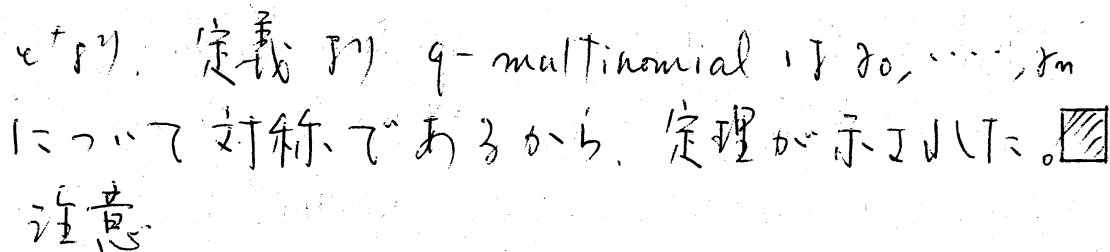 となり、定義より q-multinomial は γ₀, ‥‥, γₙ
について対称であるから、定理が示された。▨
注意